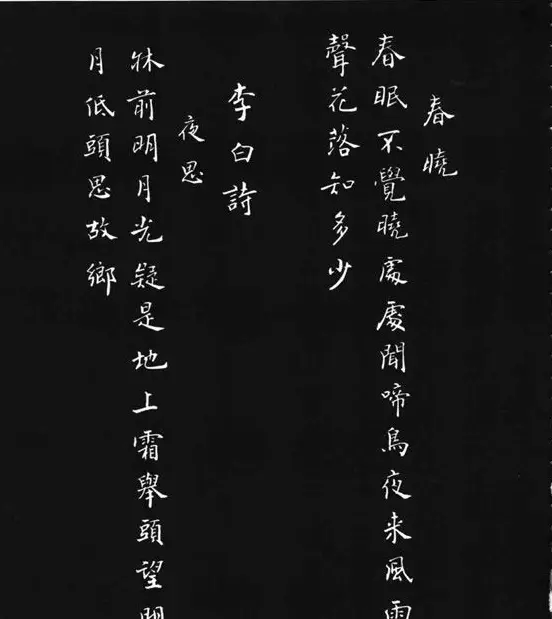 春曉
春眠不覺曉處處聞啼鳥夜来風雨
聲花落知多少
李白詩
夜思
牀前明月光疑是地上霜舉頭望明
月低頭思故鄉